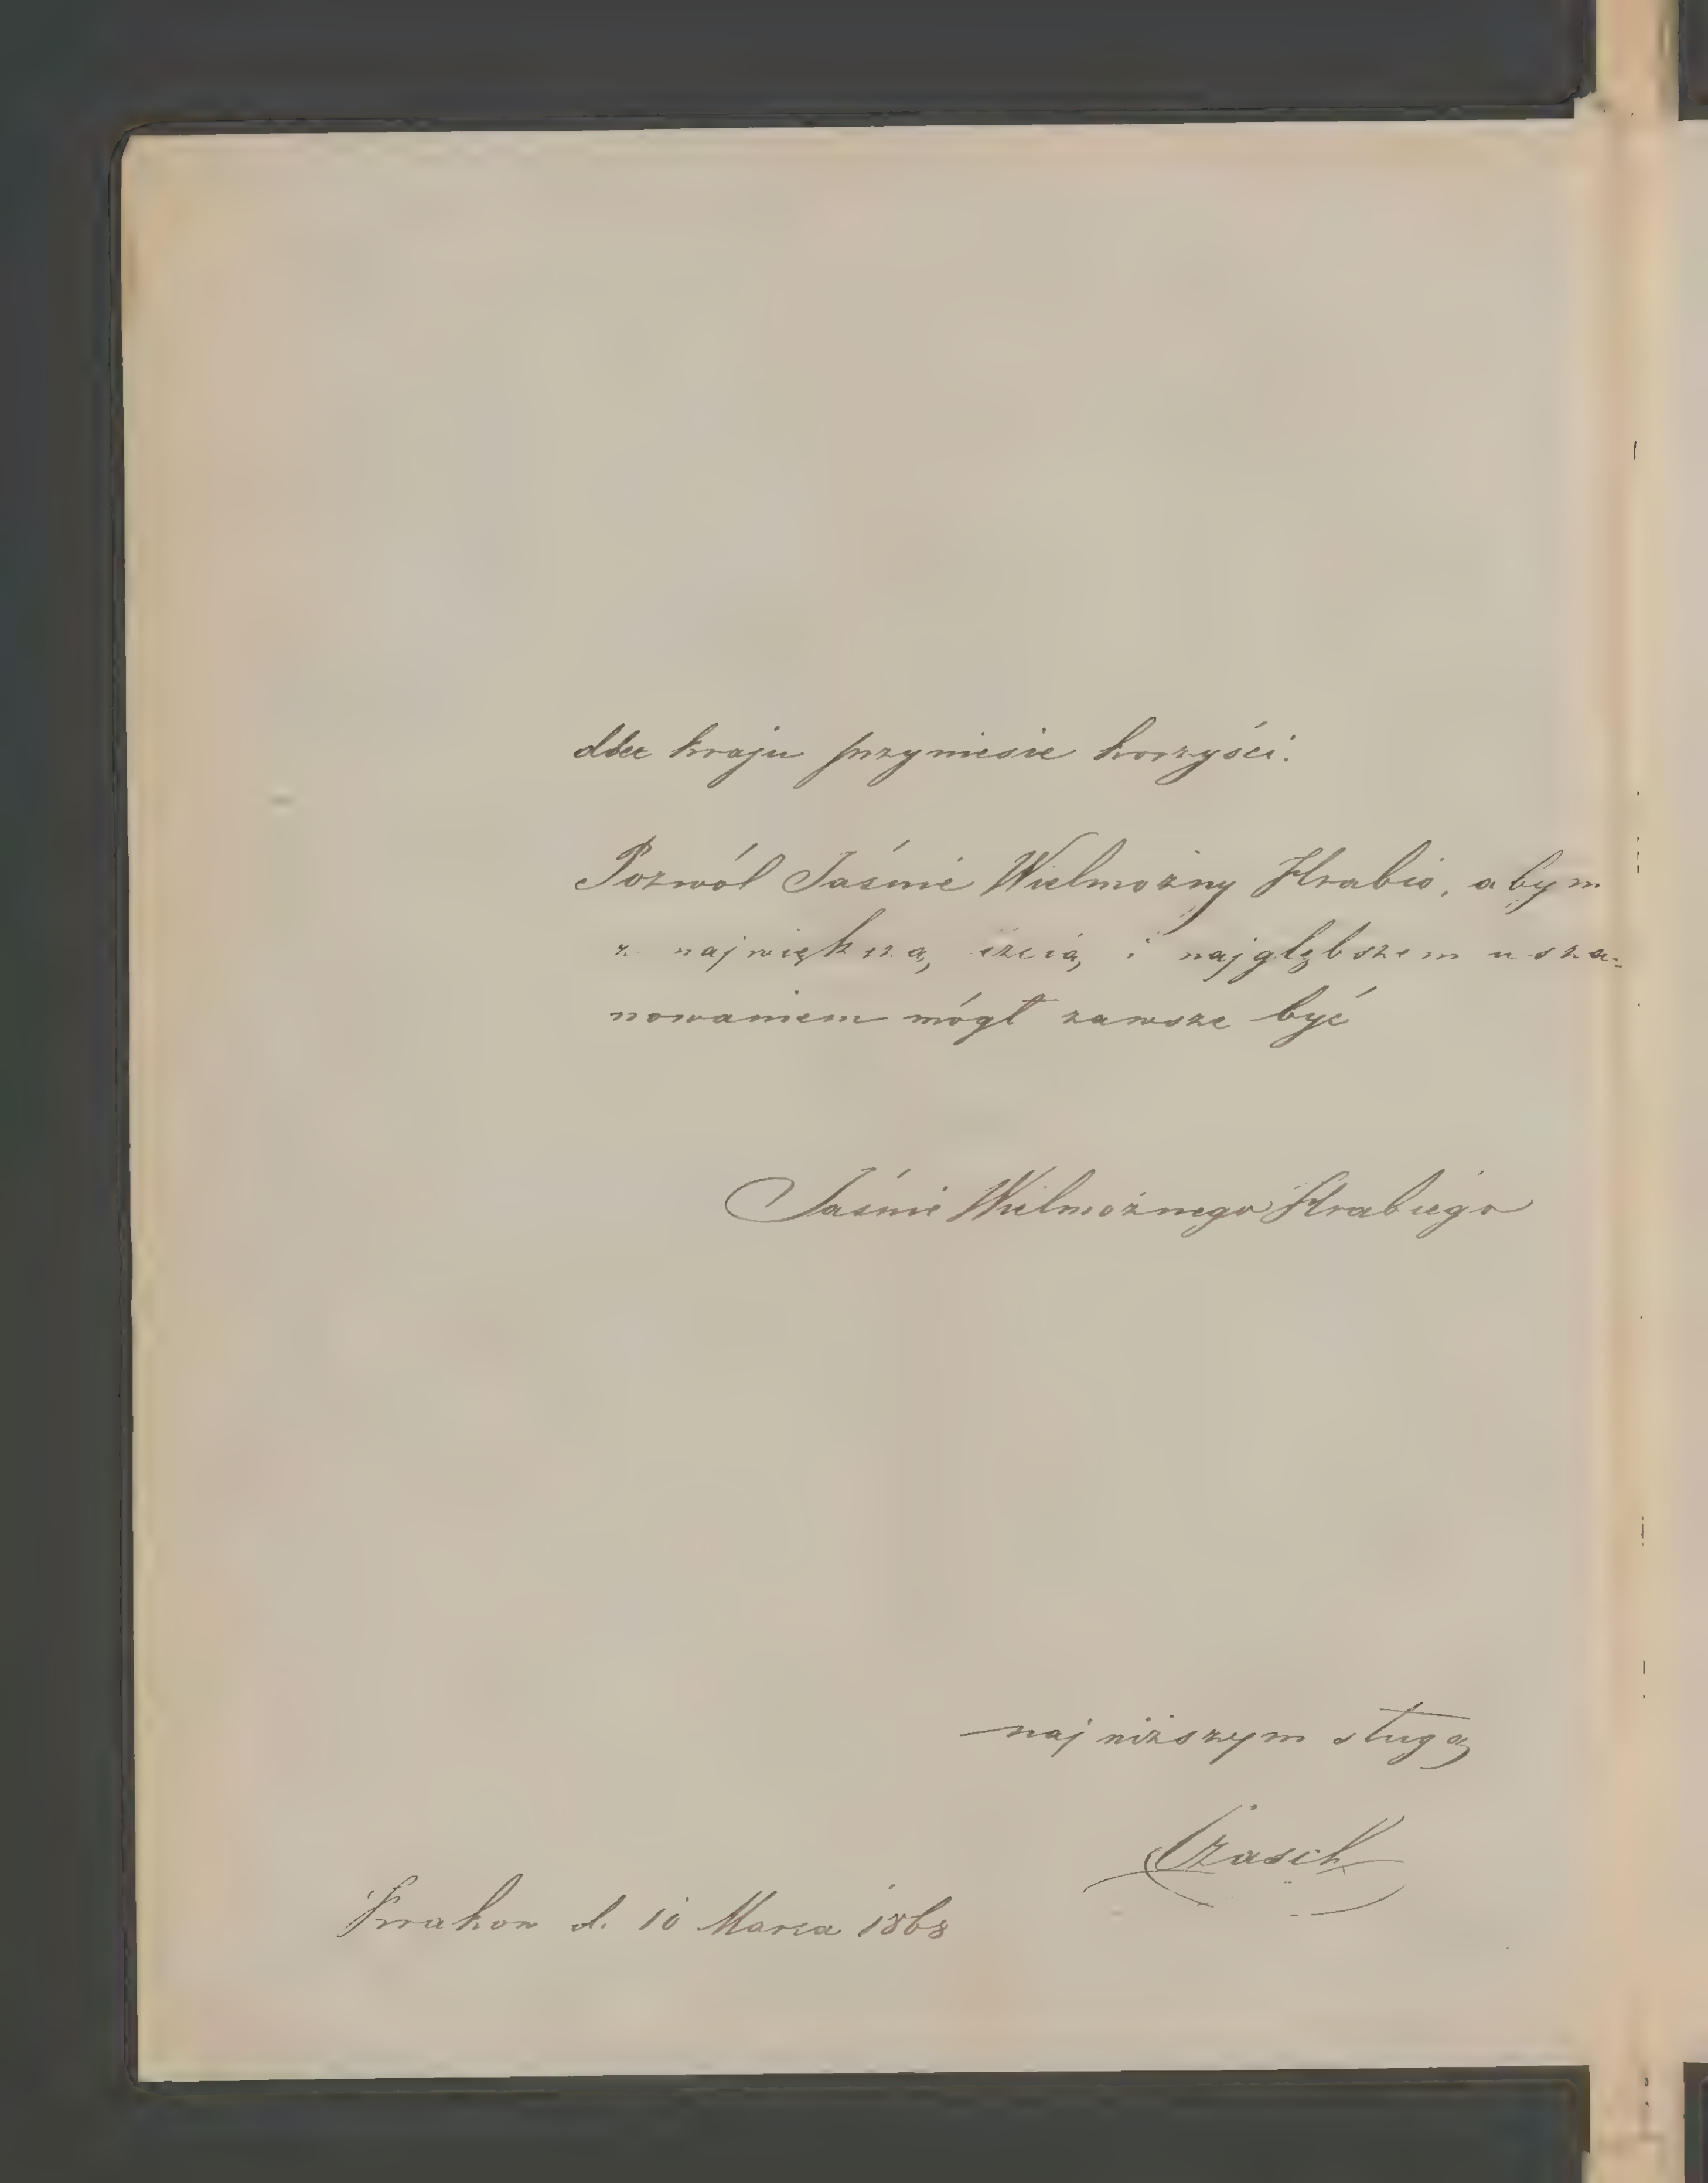 dla kraju przyniesie korzyści.
Pozwól Jaśnie Wielmożny Hrabio, abym
z największą czcią i najgłębszem usza-
nowaniem mógł zawsze być
Jaśnie Wielmożnego Hrabiego
najniższym sługą
Czasch
Krakow d. 10 Marca 1868